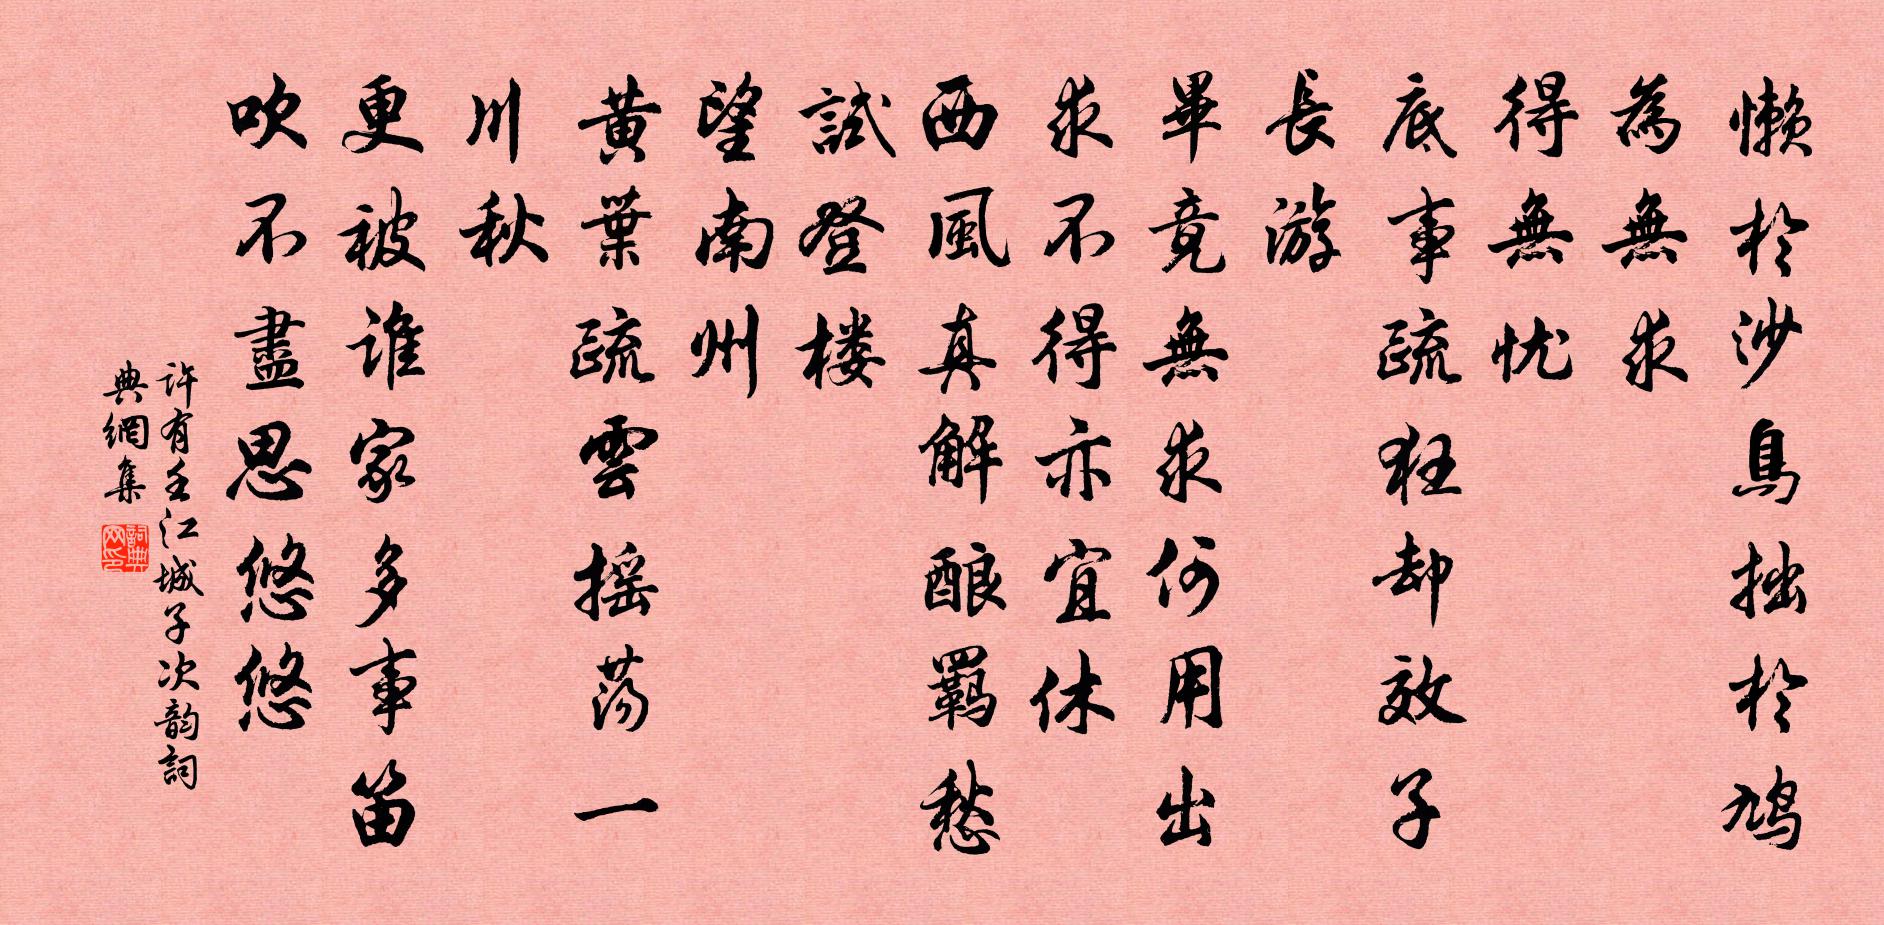 懶於沙鳥拙於鳩
為無求
得無忧
底事疏狂却效子
長游
畢竟無求何用出
求不得亦宜休
西風真解酿羁愁
試登楼
望南州
黃葉疏雲摇荡一
川秋
更被谁家多事笛
吹不盡思悠悠
許有壬江城子次韵詞
典網集
詞典网印